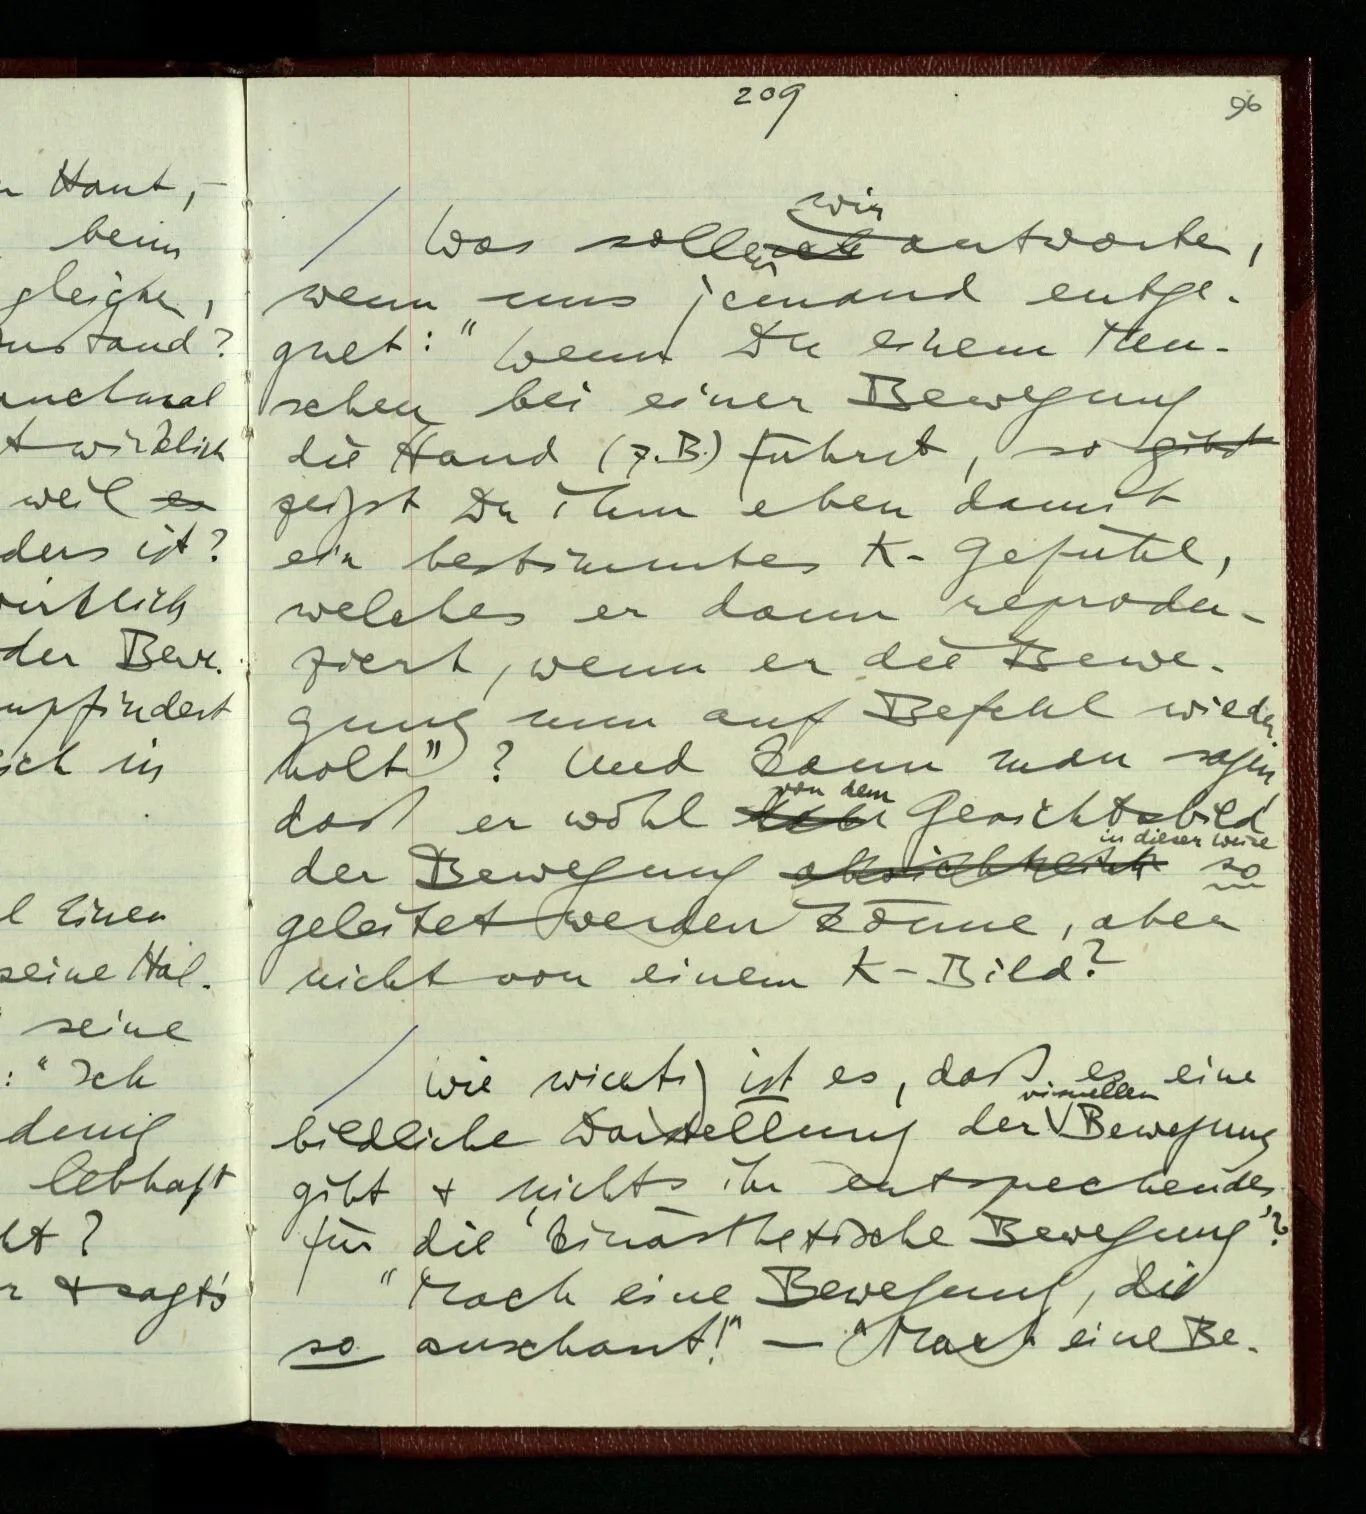 209
96
n Haut, –
beim
gleichen,
nstand?
anchmal
t wirklich
weil es
ders ist?
wirklich
der Bew.
mpfindest
ich in
l einen
seine Hal-
seine
: "Ich
denig
lebhaft
ht?
r & sagt's
/ Was sollen wir antworten,
wenn uns jemand entge-
gnet: "Wenn Du einem Men-
schen bei einer Bewegung
die Hand (z.B.) führst, so gibst
zeigst Du ihm eben damit
ein bestimmtes K-Gefühl,
welches er dann reprodu-
ziert, wenn er die Bewe-
gung nun auf Befehl wieder-
holt"? Und kann man sagen
daß er wohl von dem Gesichtsbild
der Bewegung in dieser Weise so
geleitet werden könne, aber
nicht von einem K-Bild?
/ Wie wichtig ist es, daß es eine
bildliche Darstellung der visuellen Bewegung
gibt & nichts ihr entsprechendes
für die 'kinästhetische Bewegung'?
"Mach eine Bewegung, die
so ausschaut!" – "Mach eine Be-